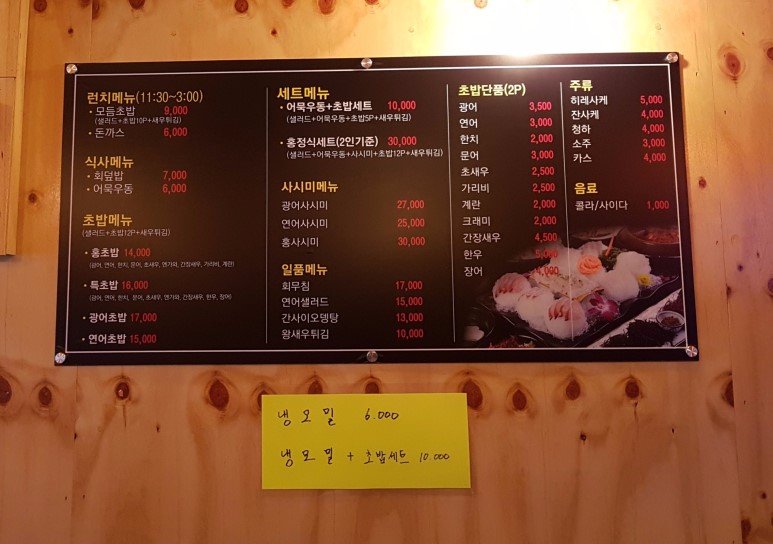 런치메뉴(11:30~3:00)
· 모듬초밥 9,000
(샐러드+초밥10P+새우튀김)
· 돈까스 6,000
식사메뉴
· 회덮밥 7,000
· 어묵우동 6,000
초밥메뉴
(샐러드+초밥12P+새우튀김)
· 홍초밥 14,000
(광어, 연어, 한치, 문어, 초새우, 엔가와, 간장새우, 가리비, 계란)
· 특초밥 16,000
(광어, 연어, 한치, 문어, 초새우, 엔가와, 간장새우, 한우, 장어)
· 광어초밥 17,000
· 연어초밥 15,000
세트메뉴
· 어묵우동+초밥세트 10,000
(샐러드+어묵우동+초밥5P+새우튀김)
· 홍정식세트(2인기준) 30,000
(샐러드+어묵우동+사시미+초밥12P+새우튀김)
사시미메뉴
광어사시미 27,000
연어사시미 25,000
홍사시미 30,000
일품메뉴
회무침 17,000
연어샐러드 15,000
간사이오뎅탕 13,000
왕새우튀김 10,000
초밥단품(2P)
광어 3,500
연어 3,000
한치 2,000
문어 3,000
초새우 2,500
가리비 2,500
계란 2,000
크래미 2,000
간장새우 4,500
한우 5,000
장어 4,000
주류
히레사케 5,000
잔사케 4,000
청하 4,000
소주 3,000
카스 4,000
음료
콜라/사이다 1,000
냉모밀 6.000
냉모밀 + 초밥세트 10.000